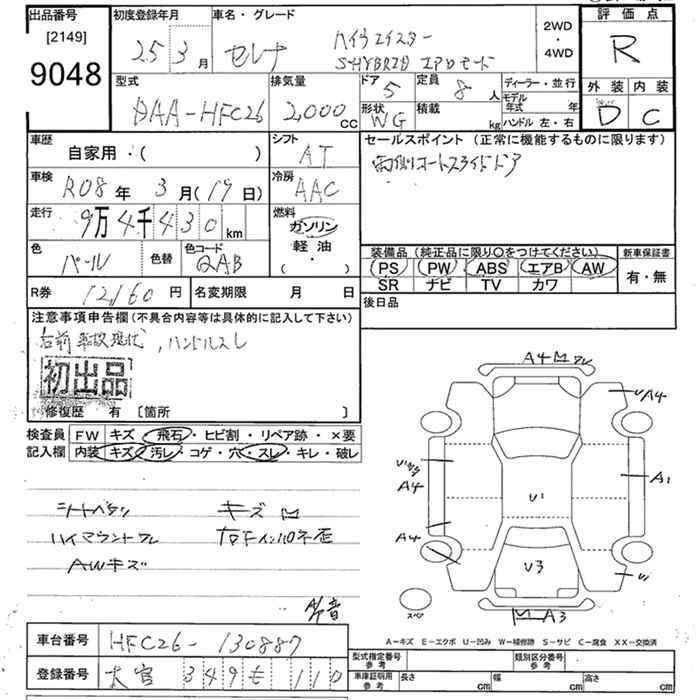 出品番号
[2149]
9048
初度登録年月
25 3月
車名・グレード
セレナ
ハイウェイスター
S-HYBRID エアロモード
2WD
・
4WD
評価点
R
外装 内装
D C
型式
DAA-HFC26
排気量
2,000cc
ドア
5
定員
8人
形状
WG
積載
kg
ディーラー・並行
モデル年式 年
ハンドル 左・右
車歴
自家用・( )
シフト
AT
セールスポイント (正常に機能するものに限ります)
両側オートスライドドア
車検
R08年 3月(19日)
冷房
AAC
走行
9万4千430km
燃料
ガソリン
軽油
( ・ )
色
パール
色替
色コード
QAB
装備品 (純正品に限り○をつけてください)
PS PW ABS エアB AW
SR ナビ TV カワ
新車保証書
有・無
R券
12,160円
名変期限 月 日
後日品
注意事項申告欄 (不具合内容等は具体的に記入して下さい)
右前事故現状, ハンドルスレ
初出品
修復歴 有 [箇所 ]
検査員記入欄
FW キズ・飛石・ヒビ割・リペア跡・×要
内装 キズ・汚レ・コゲ・穴・スレ・キレ・破レ
シートヘタリ キズ
ハイマウントワレ
AWキズ
A4
A4
A4
A4
A1
U1
U3
A3
スペア
A-キズ E-エクボ U-凹み W-補修跡 S-サビ C-腐食 XX-交換済
車台番号
HFC26-130887
登録番号
大宮 349 も 110
型式指定番号
参考
類別区分番号
参考
車庫証明用
参考
長さ cm
幅 cm
高さ cm